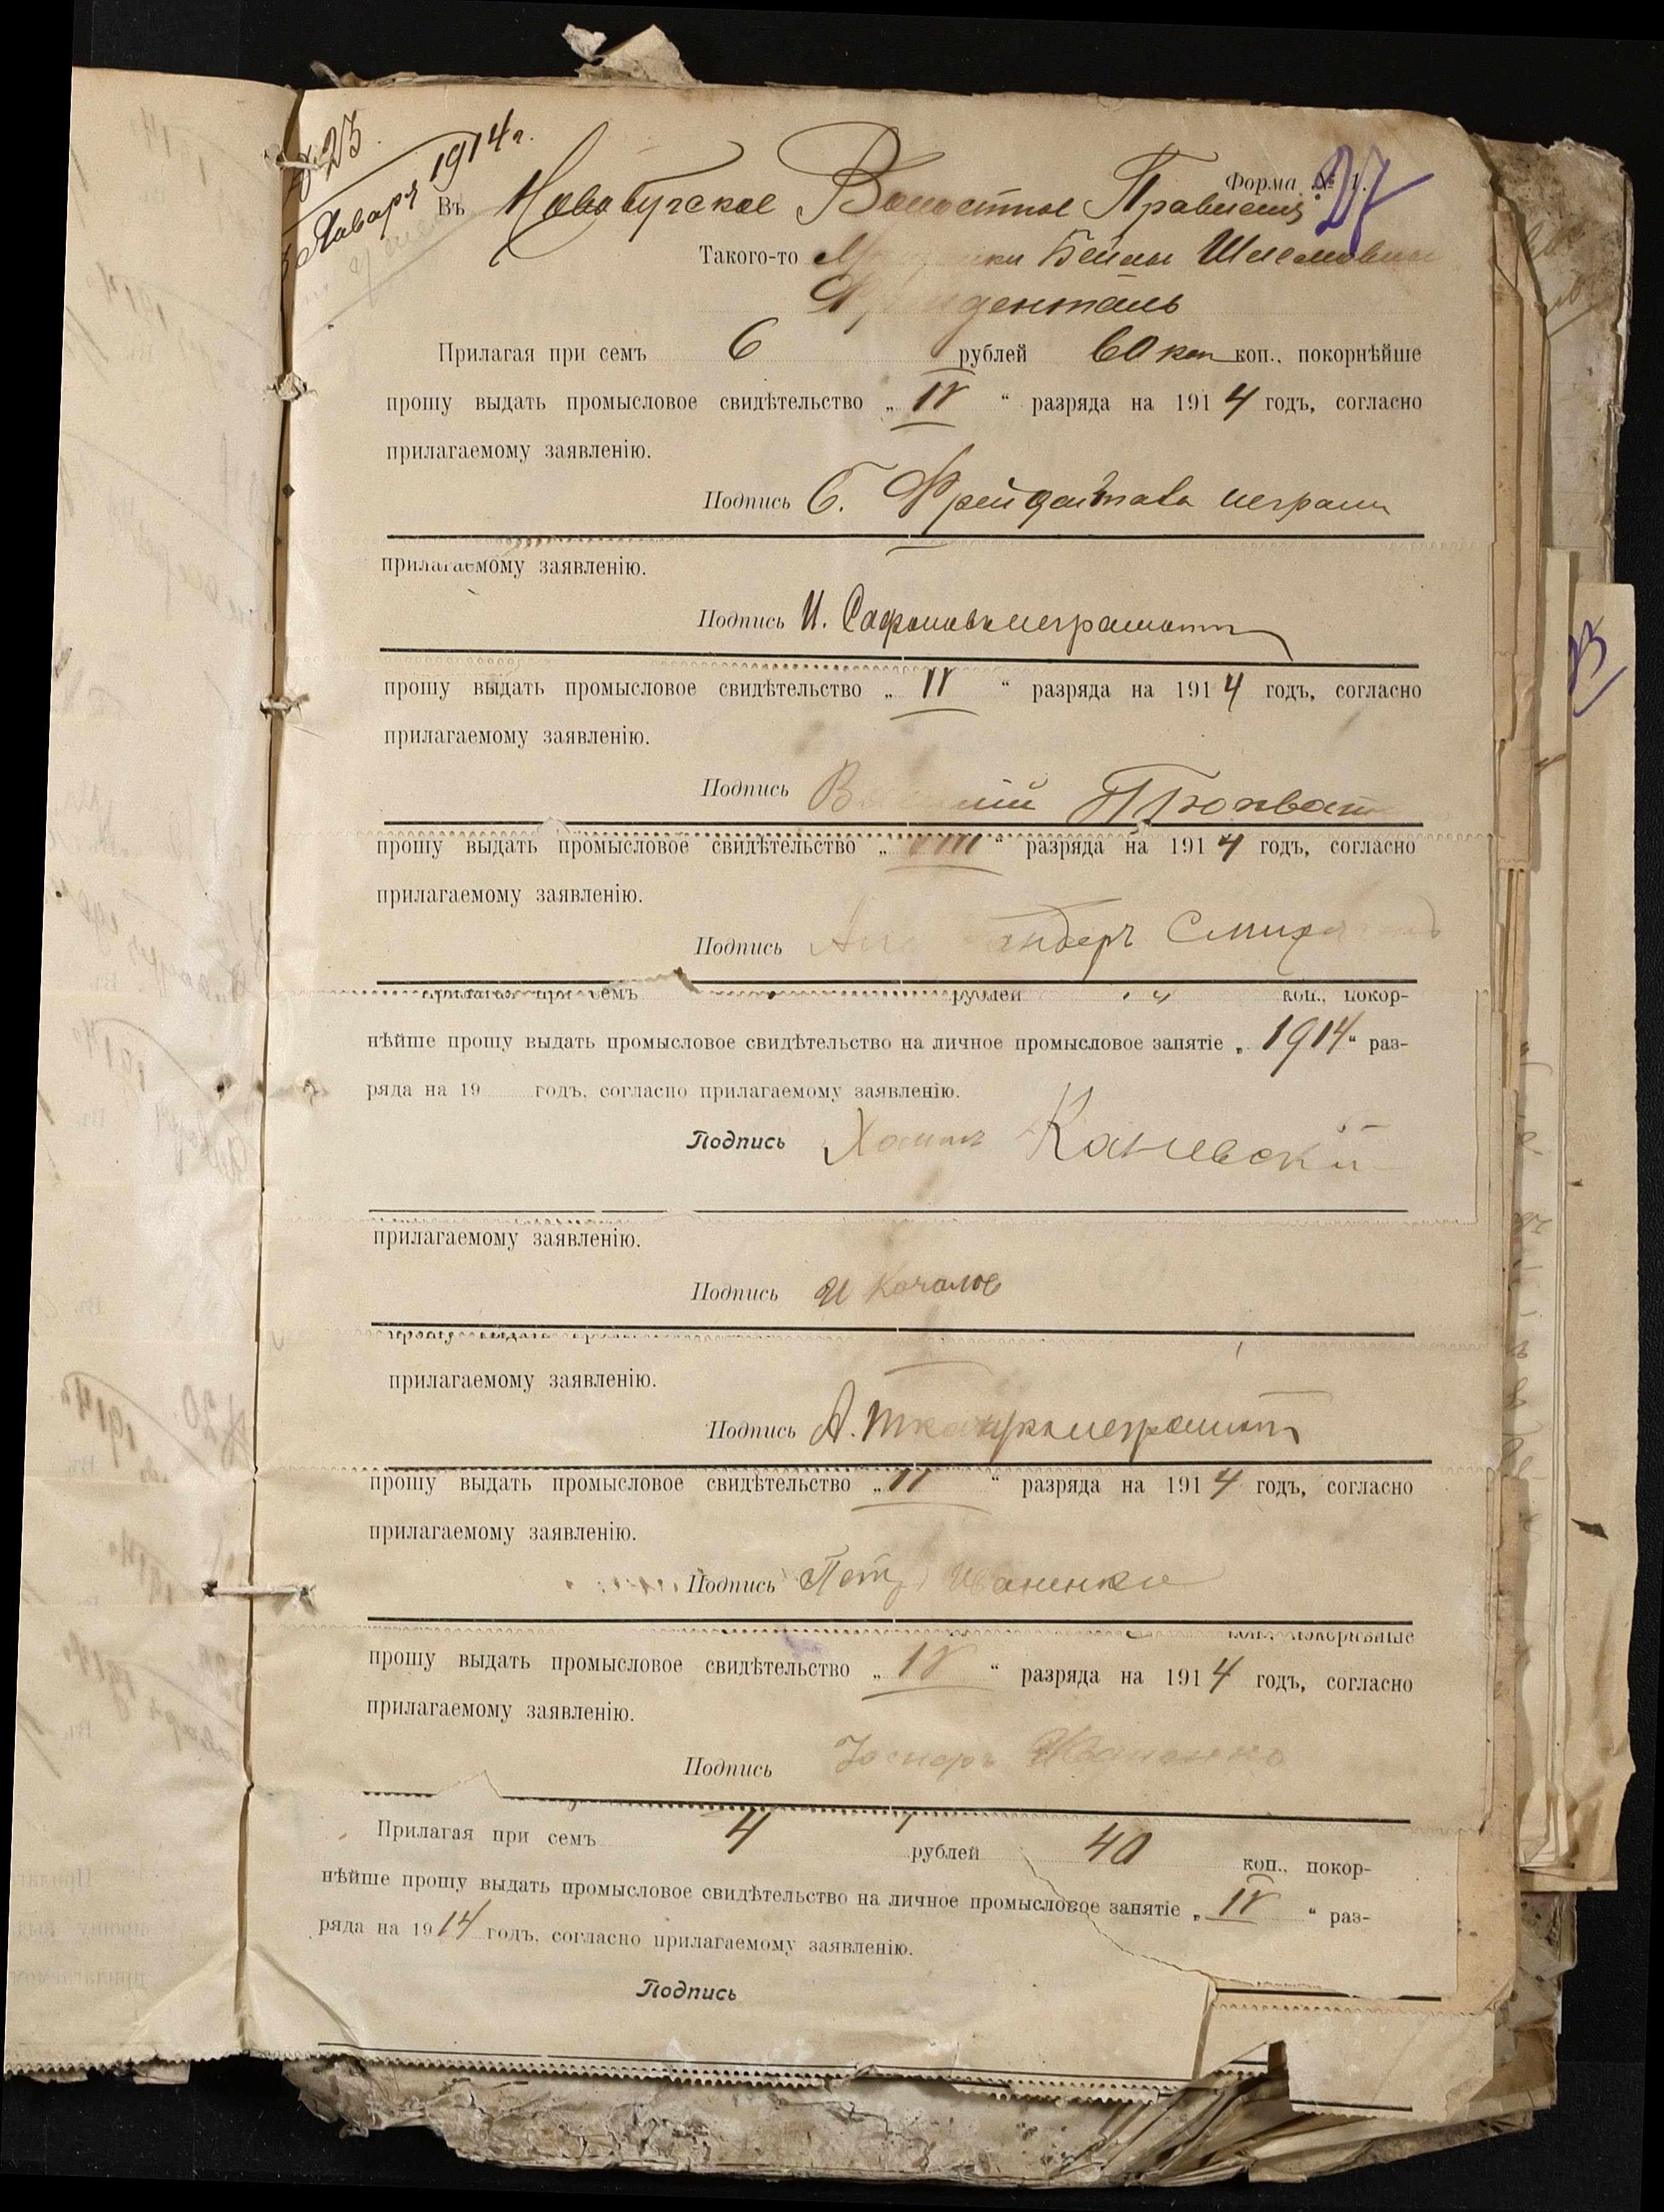 № 23.
Января 1914 г.
Форма № 1.
27
Въ Новобугское Волостное Правленіе
Такого-то Бейлы Шлемовны
Фрейденталь
Прилагая при семъ 6 рублей 60 коп коп., покорнѣйше
прошу выдать промысловое свидѣтельство „ IV “ разряда на 1914 годъ, согласно
прилагаемому заявленію.
Подпись Б. неграм
прилагаемому заявленію.
Подпись И. Сафоновъ неграмотн
прошу выдать промысловое свидѣтельство „ IV “ разряда на 1914 годъ, согласно
прилагаемому заявленію.
Подпись
прошу выдать промысловое свидѣтельство „ “ разряда на 1914 годъ, согласно
прилагаемому заявленію.
Подпись
Прилагая при семъ рублей коп., покор-
нѣйше прошу выдать промысловое свидѣтельство на личное промысловое занятіе „ 1914 “ раз-
ряда на 19 годъ, согласно прилагаемому заявленію.
Подпись Каневскій
прилагаемому заявленію.
Подпись И Качалов
прилагаемому заявленію.
Подпись А. Ткачукъ неграмотн
прошу выдать промысловое свидѣтельство „ “ разряда на 1914 годъ, согласно
прилагаемому заявленію.
Подпись Петр Иваненко
коп., покорнѣйше
прошу выдать промысловое свидѣтельство „ IV “ разряда на 1914 годъ, согласно
прилагаемому заявленію.
Подпись Иваненко
Прилагая при семъ 4 рублей 40 коп., покор-
нѣйше прошу выдать промысловое свидѣтельство на личное промысловое занятіе „ IV “ раз-
ряда на 1914 годъ, согласно прилагаемому заявленію.
Подпись